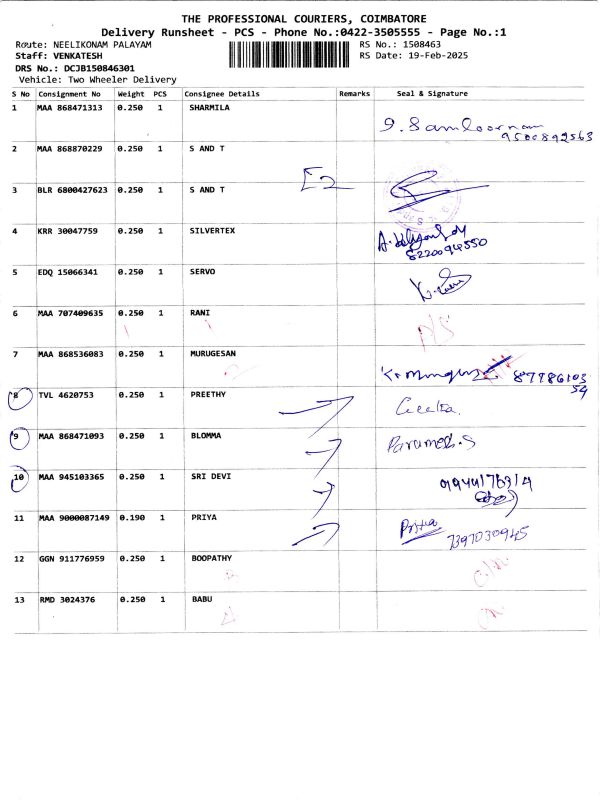 THE PROFESSIONAL COURIERS, COIMBATORE
Delivery Runsheet - PCS - Phone No.:0422-3505555 - Page No.:1
Route: NEELIKONAM PALAYAM RS No.: 1508463
Staff: VENKATESH RS Date: 19-Feb-2025
DRS No.: DCJB150846301
Vehicle: Two Wheeler Delivery
S No Consignment No Weight PCS Consignee Details Remarks Seal & Signature
1 MAA 868471313 0.250 1 SHARMILA
9500892563
2 MAA 868870229 0.250 1 S AND T
E2
3 BLR 6800427623 0.250 1 S AND T
4 KRR 30047759 0.250 1 SILVERTEX
8220094550
5 EDQ 15066341 0.250 1 SERVO
6 MAA 707409635 0.250 1 RANI
7 MAA 868536083 0.250 1 MURUGESAN
8 TVL 4620753 0.250 1 PREETHY
9 MAA 868471093 0.250 1 BLOMMA
10 MAA 945103365 0.250 1 SRI DEVI
11 MAA 9000087149 0.190 1 PRIYA Priya
7397030945
12 GGN 911776959 0.250 1 BOOPATHY
13 RMD 3024376 0.250 1 BABU